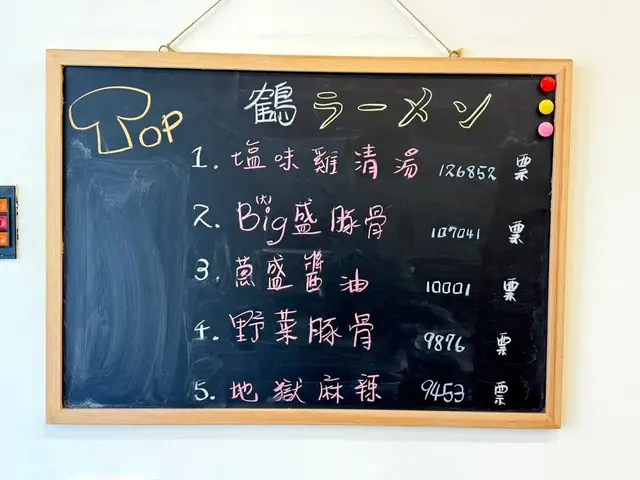 TOP
鶴ラーメン
1. 塩味雞清湯 126852 票
2. Big(大)盛豚骨 107041 票
3. 蔥盛醬油 10001 票
4. 野菜豚骨 9876 票
5. 地獄麻辣 9453 票